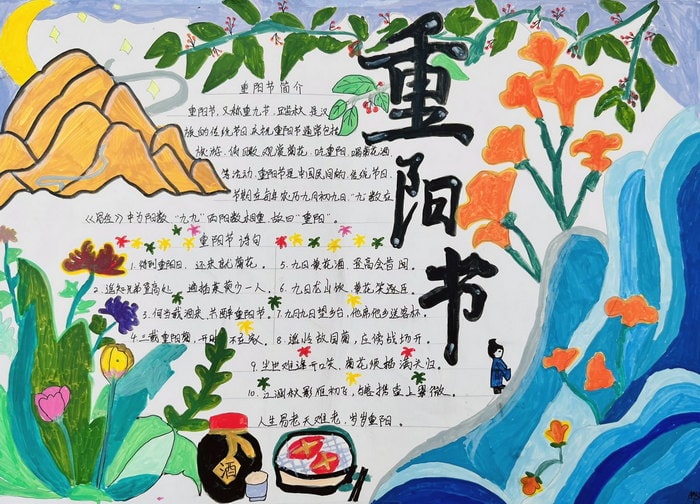 重阳书
重阳节简介
重阳节,又称重九节、 是汉
族的传统节日 庆祝重阳节通常包括
旅游、 观赏菊花、 喝菊花酒
等活动,重阳节是中国民间的传统节日
节期在每年农历九月初九日,"九"数在
《易经》中为阳数"九九"两阳数相重,故曰"重阳"。
重阳节诗句
1.待到重阳日,还来就菊花。
2.遥知兄弟登高处 遍插茱萸少一人。
3.何当载酒来,共醉重阳节。
4.三载重阳菊,开时不在家。
5.九日黄花酒 登高会昔闻。
6.九日龙山饮,黄花笑逐臣。
7.九月九日望乡台,他席他乡送客杯。
8.遥怜故园菊,应傍战场开。
9.尘世难逢开口笑,菊花须插满头归。
10.江涵秋影雁初飞,与客携壶上翠微。
人生易老天难老,岁岁重阳。
酒